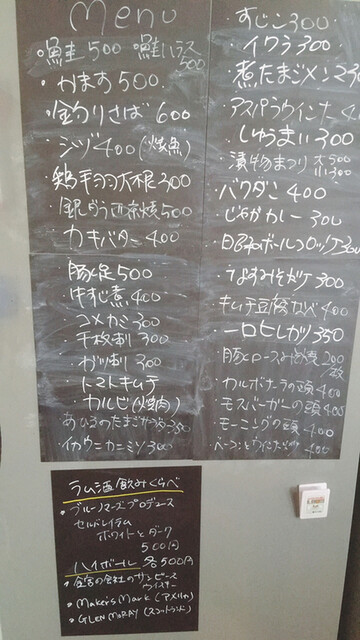 Menu
・鮭 500 鮭ハラス 500
・かます 500
・金釣りさば 600
・シヅ 400 (焼魚)
・鶏手羽大根 300
・銀だら西京焼 500
・カキバター 400
・豚足 500
・牛すじ煮 400
・コメカミ 300
・千枚刺 300
・ガツ刺 300
・トマトキムチ
・カルビ(焼肉)
・あひるのたまごかつお 350
・イカウニカニミソ 300
・すじこ 300
・イクラ 300
・煮たまごメン 23
・アスパラウインナー 4
・しゅうまい 300
・漬物まつり 大500 小300
・バクダン 400
・じゃがカレー 300
・日昭和ボールコロッケ 300
・なすみそガケ 300
・キムチ豆腐なべ 400
・一口ヒレカツ 350
・豚ロースみそ焼 200/枚
・カルボナーラの頭 400
・モスバーガーの頭 400
・モーニングの頭 400
・ベーコンとウインナー 400
ラム酒飲みくらべ
・ブルーノマーズプロデュース
セルバレイテム
ホワイトとダーク
500円
ハイボール 各500円
・ 会社のサンピース
ウイスキー
・Maker's Mark (アメリカ)
・GLEN MORAY (スコットランド)